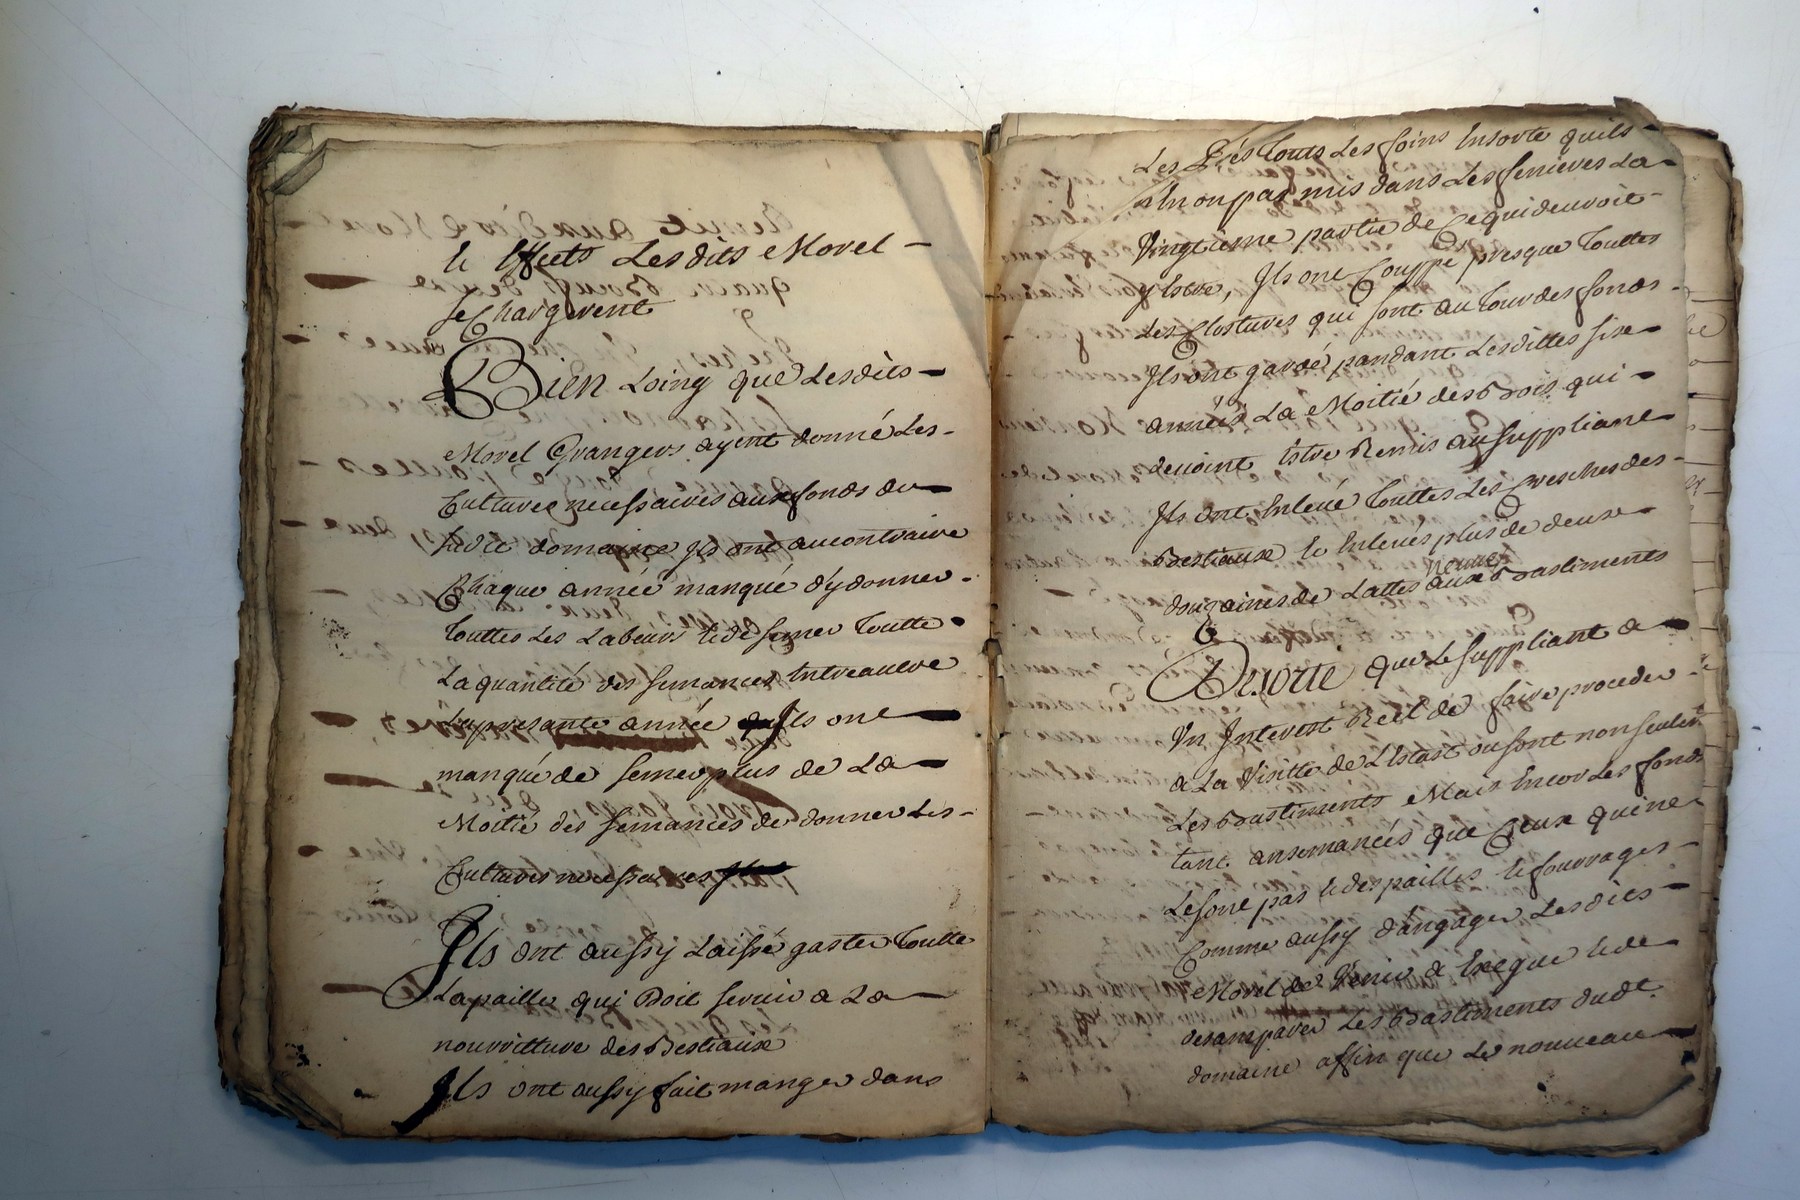 Et Effects Lesdits Morel
se Chargerent
Bien Loing que Lesdits
Morel Grangers ayent donné Les
Cultures necessaires aux fonds du
sudit domaine Ils ont aucontraire
Chaque année manqué d'y donner
Touttes Les Labeurs Et de semer Toutte
La quantité des semances Entreautre
La presante année Ils ont
manqué de semer plus de La
Moitié des semances de donner Les
Cultures necessaires
Ils ont aussy Laissé gaster Toutte
La paille qui Doit servir a La
nourritture des Bestiaux
Ils ont aussy fait manger dans
Les Prés Touts Les foins Ensorte quils
n'En ont pas mis dans Les fenieres La
Vingtieme partie de Ce qui devoit
y Estre, Ils ont Couppé presque Touttes
Les Clostures qui sont au Tour des fonds
Ils ont gardé pandant Lesdittes six
années La Moitié des Bois qui
devoint Estre Remis au suppliant
Ils ont Enlevé Touttes Les Cresches des
Bestiaux Et Enlevés plus de deux
neuves
douzaines de Lattes aux Bastiments
Desorte que Le suppliant a
Un Interest Réel de faire proceder
a La Visitte de L'Estast ou sont non seulemt
Les Bastiments Mais Encor Les fonds
tant ansemancés que Ceux qui ne
Le sont pas Et des pailles Et fourrages
Comme aussy d'angager Lesdits
Morel de Venir a Exegue Et de
desamparer Les Bastiments dudt
domaine affin que Le nouveau